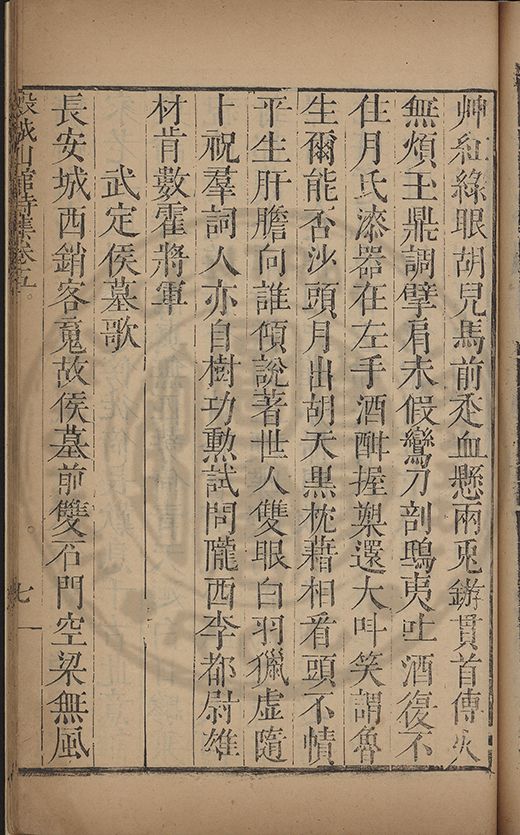 艸紅綠眼胡兒馬前走血懸兩兎鎊貫首傳火
無煩玉鼎調擘肩未假鸞刀剖鴟夷吐酒復不
住月氏漆器在左手酒酣握槊還大呌笑謂魯
生爾能否沙頭月出胡天黑枕藉相看頭不幘
平生肝膽向誰傾說著世人雙眼白羽獵虛隨
上祝羣詞人亦自樹功勲試問隴西李都尉雄
材肯數霍將軍
武定侯墓歌
長安城西銷客䰟故侯墓前雙石門空梁無風
穀城山館詩集卷五
七